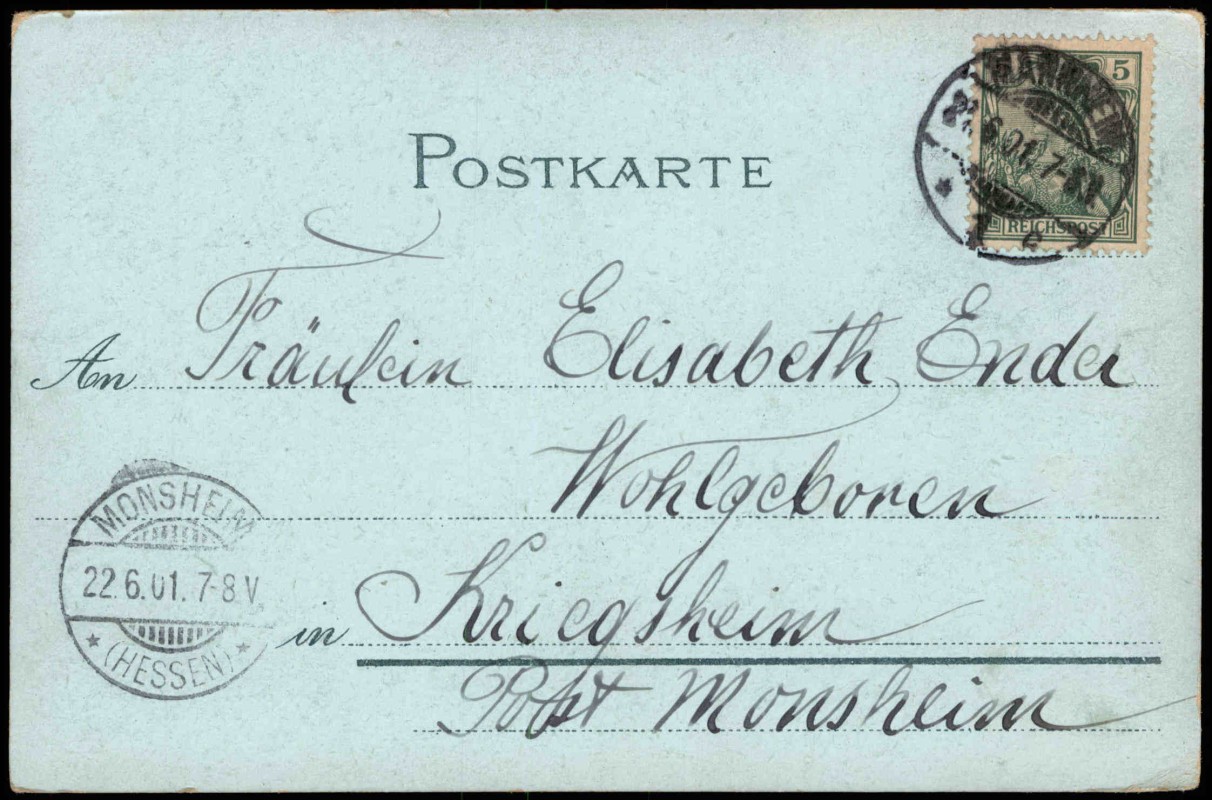 POSTKARTE
5
MANNHEIM
6.01.7-8
REICHSPOST
An Fräulein Elisabeth Ender
Wohlgeboren
MONSHEIM
22.6.01.7-8 V
(HESSEN)
in Kriegsheim
Post Monsheim